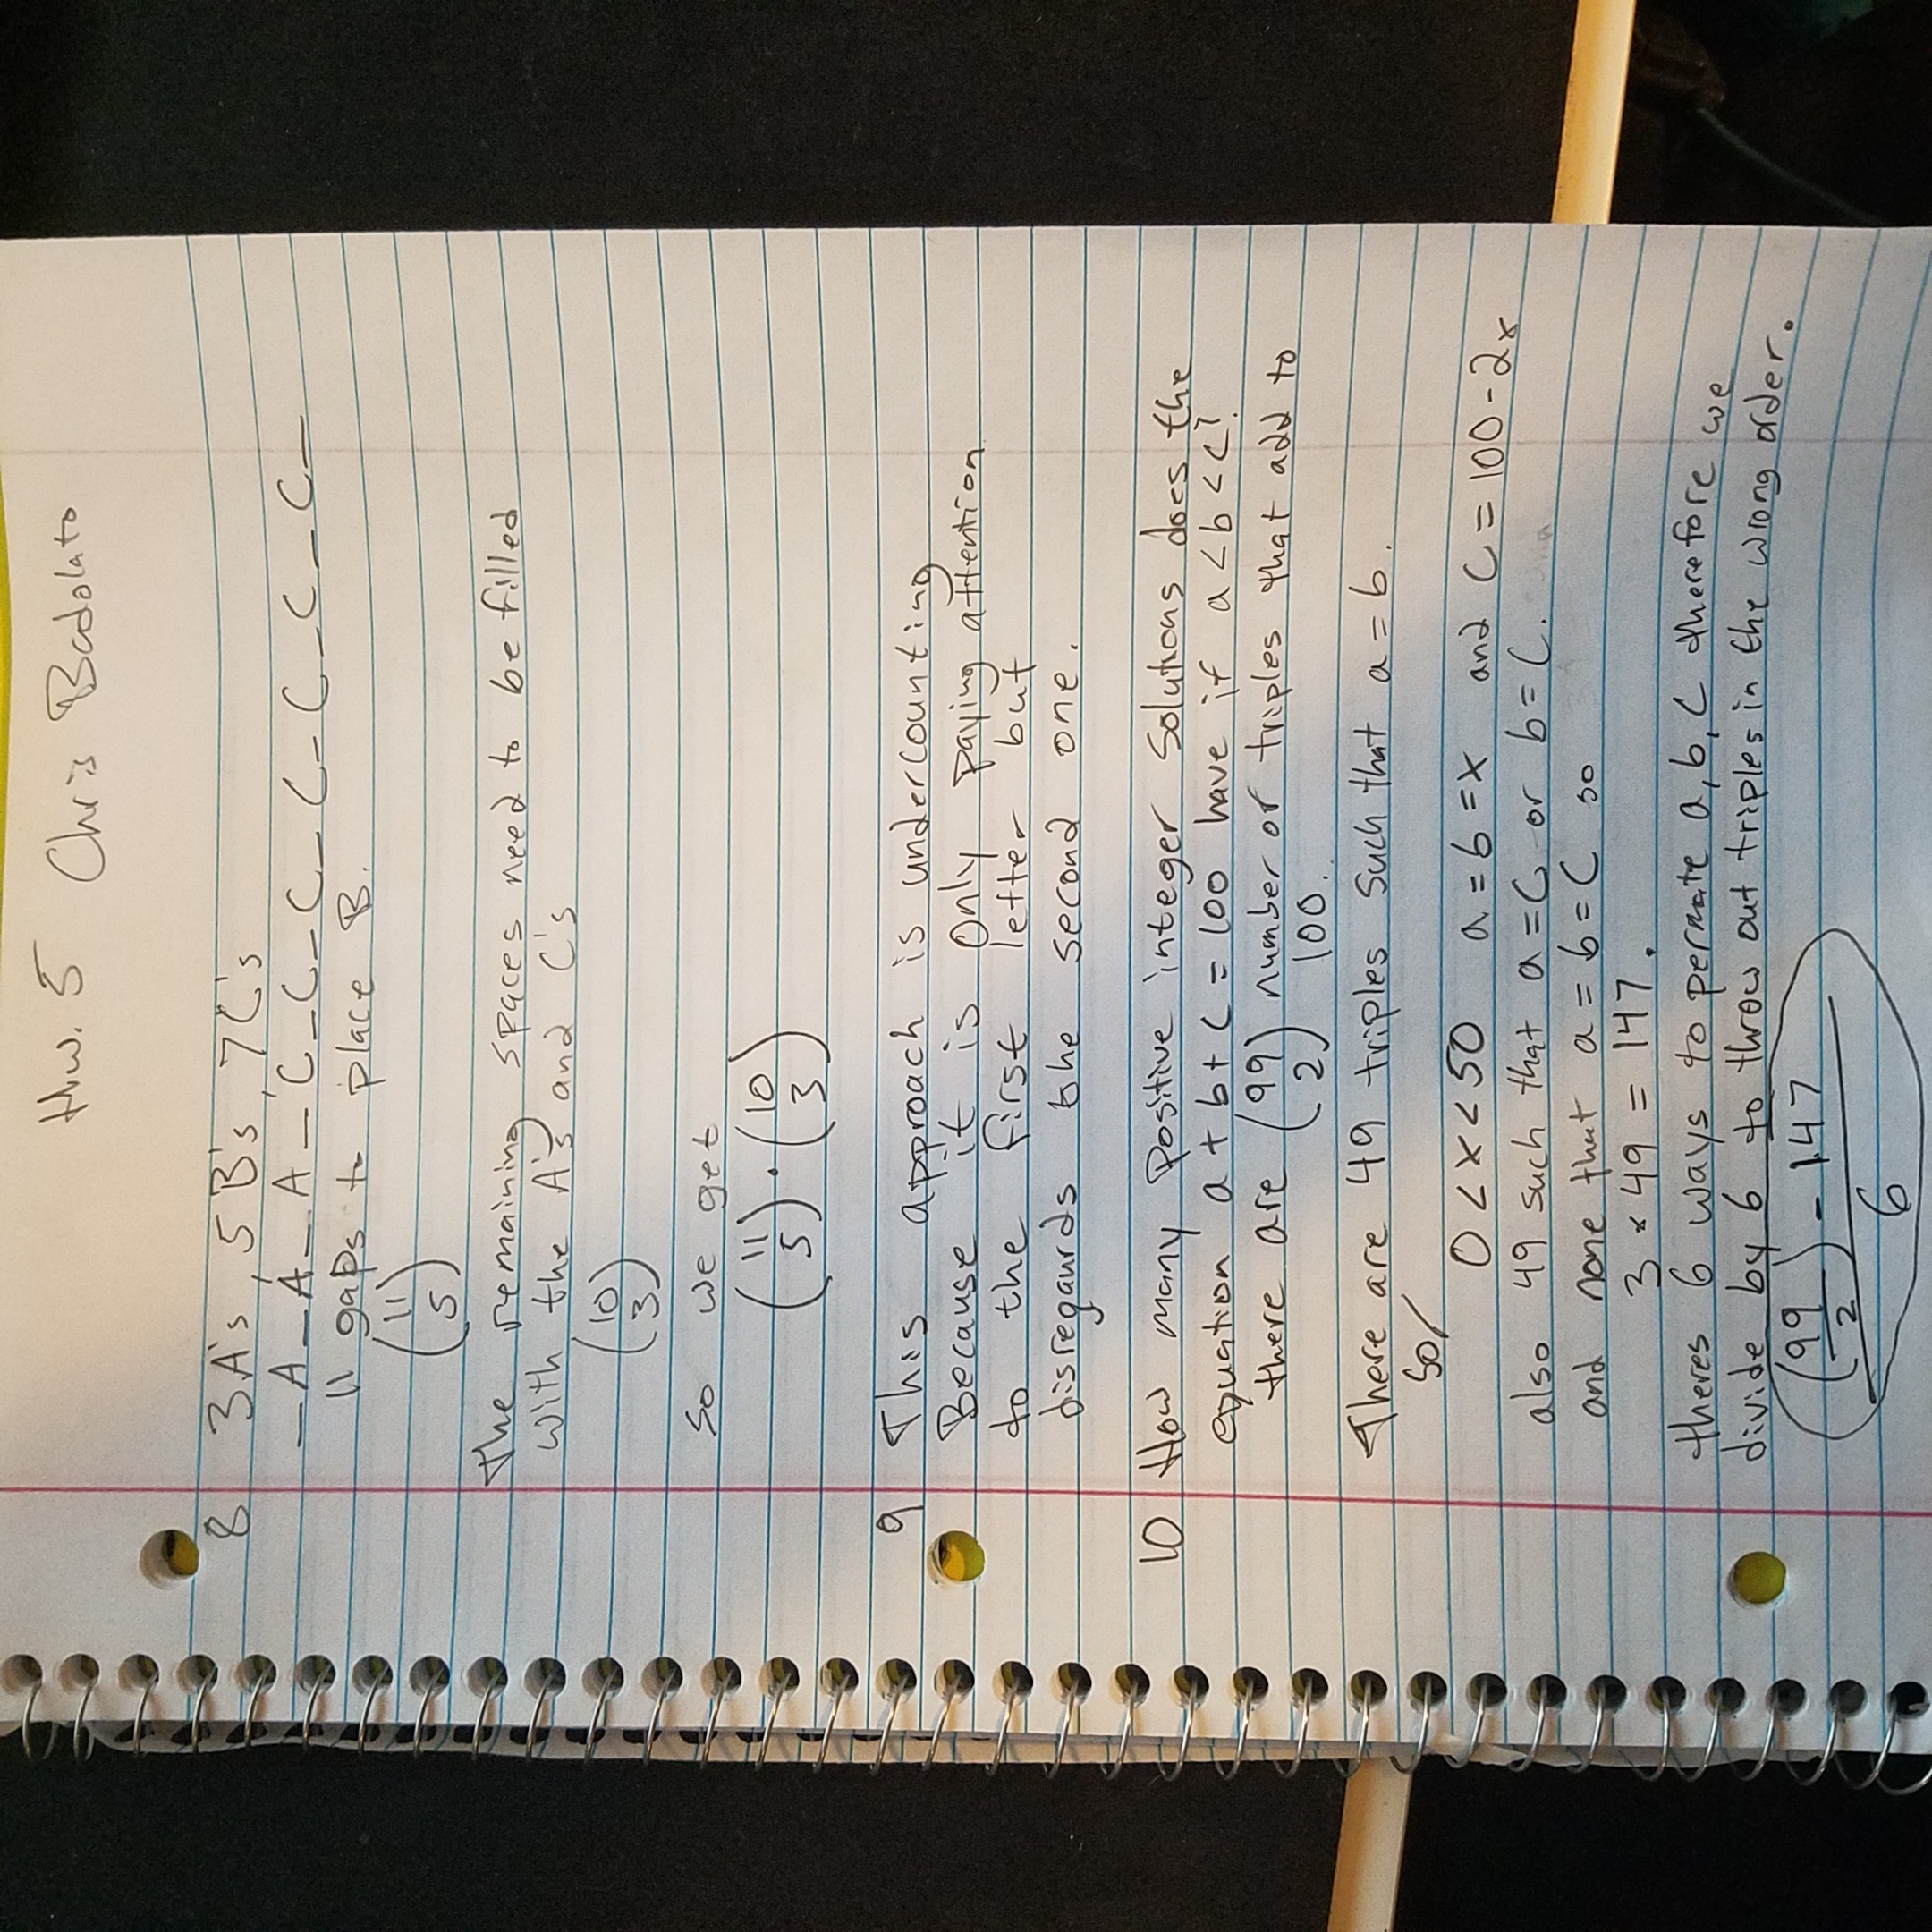 Hw. 5 Chris Badolato
8 3 A's, 5 B's, 7 C's
_ A _ A _ A _ C _ C _ C _ C _ C _ C _ C _
11 gaps to place B.
(11
5)
The remaining spaces need to be filled
with the A's and C's
(10
3)
So we get
(11
5) · (10
3)
9 This approach is undercounting
Because it is only paying attention
to the first letter but
disregaurds the second one.
10 How many positive integer solutions does the
equation a + b + c = 100 have if a < b < c?
there are (99
2) number of triples that add to
100.
There are 49 triples such that a = b.
So/
0 < x < 50 a = b = x and C = 100 - 2x
also 49 such that a = C or b = C.
and none that a = b = C so
3 × 49 = 147.
theres 6 ways to permate a, b, c therefore we
divide by 6 to throw out triples in the wrong order.
(99/2) - 147
6